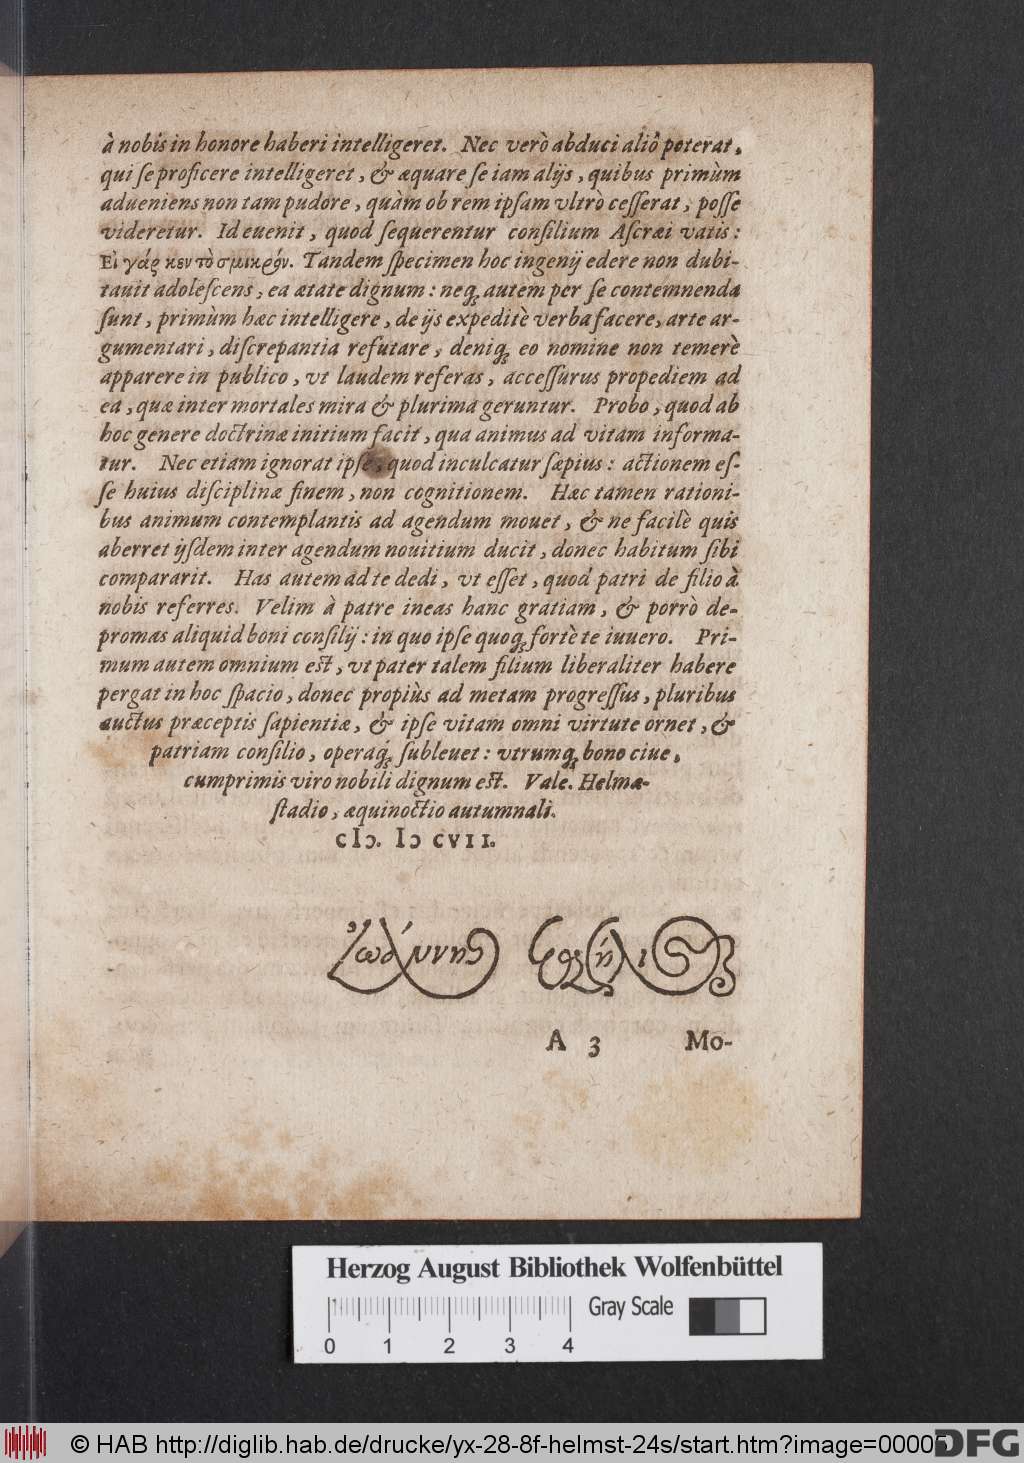 à nobis in honore haberi intelligeret. Nec verò abduci aliò poterat,
qui ſe proficere intelligeret, & æquare ſe iam alijs, quibus primùm
adueniens non tam pudore, quàm ob rem ipſam vltro ceſſerat, poſſe
videretur. Id euenit, quod ſequerentur conſilium Aſcræi vatis:
Εἰ γάρ κεν τὸ σμικρόν. Tandem ſpecimen hoc ingenij edere non dubi-
tauit adoleſcens, ea ætate dignum: neq; autem per ſe contemnenda
ſunt, primùm hæc intelligere, de ijs expeditè verba facere, arte ar-
gumentari, diſcrepantia refutare, deniq; eo nomine non temerè
apparere in publico, vt laudem referas, acceſſurus propediem ad
ea, quæ inter mortales mira & plurima geruntur. Probo, quod ab
hoc genere doctrinæ initium facit, qua animus ad vitam informa-
tur. Nec etiam ignorat ipſe, quod inculcatur ſæpius: actionem eſ-
ſe huius diſciplinæ finem, non cognitionem. Hæc tamen rationi-
bus animum contemplantis ad agendum mouet, & ne facilè quis
aberret ijſdem inter agendum nouitium ducit, donec habitum ſibi
compararit. Has autem ad te dedi, vt eſſet, quod patri de filio à
nobis referres. Velim à patre ineas hanc gratiam, & porrò de-
promas aliquid boni conſilij: in quo ipſe quoq; fortè te iuuero. Pri-
mum autem omnium eſt, vt pater talem filium liberaliter habere
pergat in hoc ſpacio, donec propiùs ad metam progreſſus, pluribus
auctus præceptis ſapientiæ, & ipſe vitam omni virtute ornet, &
patriam conſilio, operaq́; ſubleuet: vtrumq; bono ciue,
cumprimis viro nobili dignum eſt. Vale. Helmæ-
ſtadio, æquinoctio autumnali.
CIↃ. IↃ CVII.
Ἰωάννης
A 3 Mo-
Herzog August Bibliothek Wolfenbüttel
Gray Scale
0 1 2 3 4
© HAB http://diglib.hab.de/drucke/yx-28-8f-helmst-24s/start.htm?image=00005
DFG